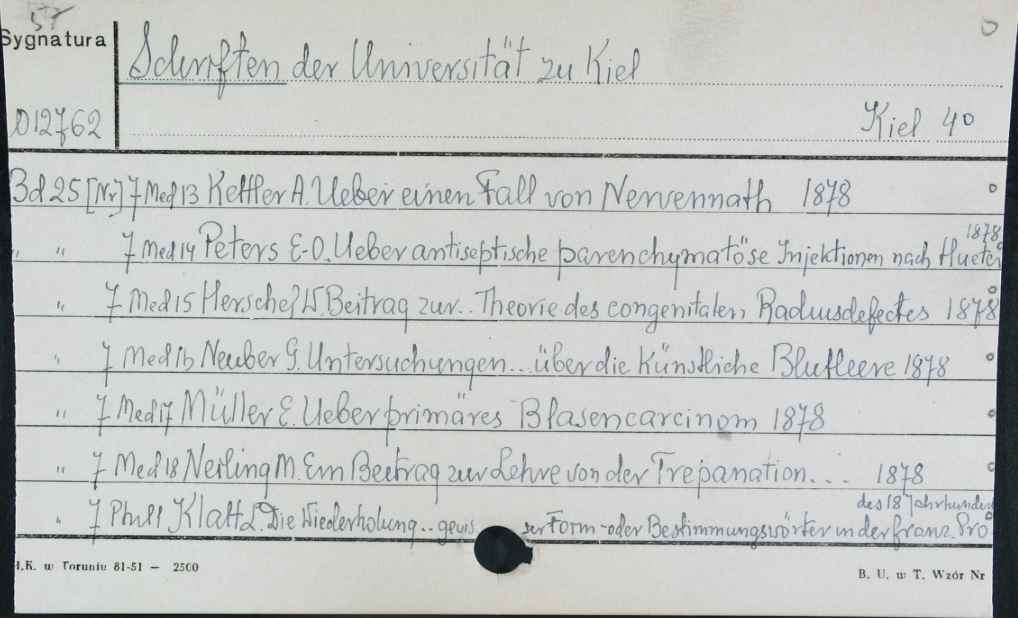 57
Sygnatura
Schriften der Universität zu Kiel
D12762
Kiel 4°
Bd 25 [Nr] 7 Med 13 Kettler A. Ueber einen Fall von Nervennath 1878
" " 7 Med 14 Peters E.O. Ueber antiseptische parenchymatöse Injektionen nach Hueter 1878
" 7 Med 15 Herschel W. Beitrag zur.. Theorie des congenitalen Radiusdefectes 1878
" 7 Med 16 Neuber G. Untersuchungen... über die Künstliche Blutleere 1878
" 7 Med 17 Müller E. Ueber primäres Blasencarcinom 1878
" 7 Med 18 Neiling M. Ein Beitrag zur Lehre von der Trepanation... 1878
des 18 Jahrhunder
" 7 Phil 1 Klatt Die Wiederholung.. gewis ser Form-oder Bestimmungswörter in der franz. Pro
I.K. w Toruniu 81-51 — 2500
B. U. w T. Wzór Nr